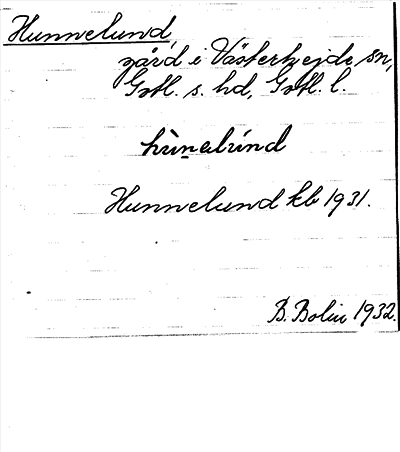 Hunnelund,
gård i Västerhejde sn,
Gotl. s. hd, Gotl. l.
hùnelúnd
Hunnelund kb 1931.
B. Bolin 1932.